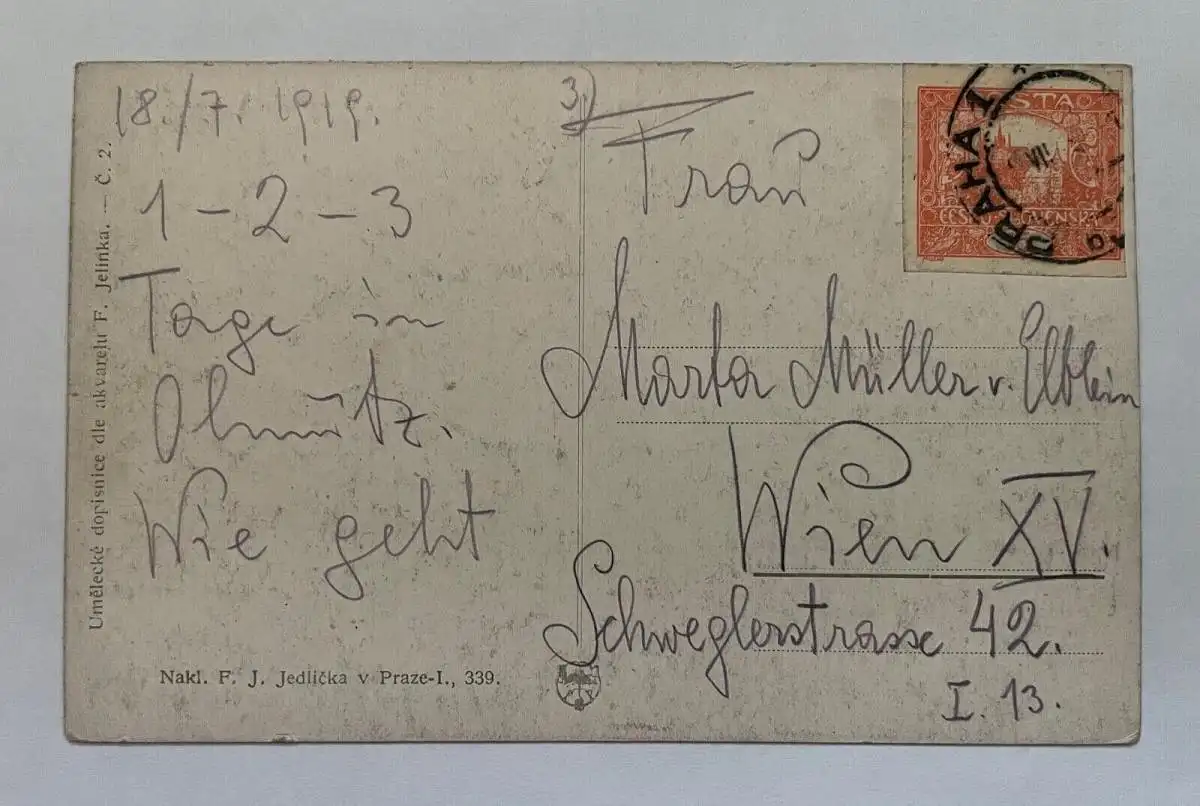 18./7. 1919.
1 – 2 – 3
Tage in
Olmütz.
Wie geht
3)
Frau
Marta Müller v.
Wien XV.
Schweglerstrasse 42.
I. 13.
PRAHA 1
VII
Umělecké dopisnice dle akvarelu F. Jelínka. — Č. 2.
Nakl. F. J. Jedlička v Praze-I., 339.